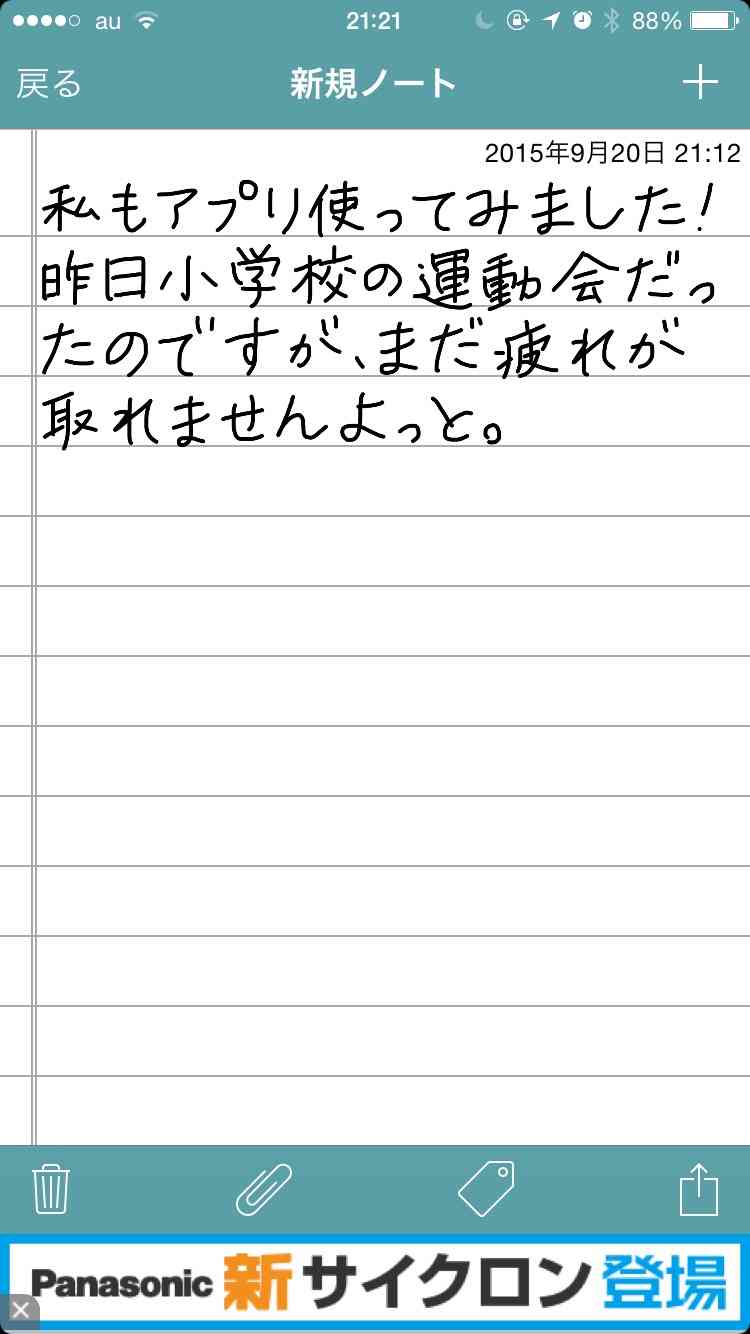 au 21:21 88%
戻る 新規ノート
2015年9月20日 21:12
私もアプリ使ってみました!
昨日小学校の運動会だっ
たのですが、まだ疲れが
取れませんよっと。
Panasonic 新サイクロン登場